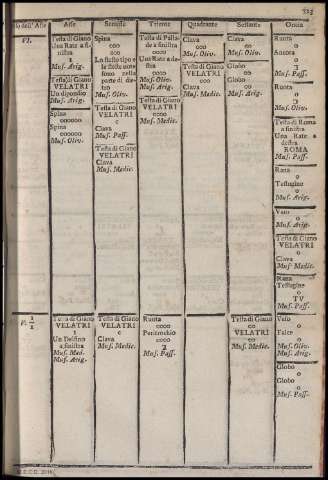 223
dell' Asse
Asse
Semisse
Triente
Quadrante
Sestante
Oncia
VI.
Testa di Giano
Una Rate a si-
nistra
I
Mus. Arig.
Testa di Giano
VELATRI
Un dipondio
Mus. Arig.
Spina
000000
Spina
000000
Mus. Oliv.
Spina
000
000
Lo stesso tipo e
le stesse note
sono nella
parte di die-
tro
Mus. Oliv.
Testa di Giano
VELATRI
C
Clava
Mus. Pass.
Testa di Giano
VELATRI
Clava
Mus. Medic.
Testa di Palla-
de a sinistra
0000
Una Rate a de-
stra
0000
Mus. Oliv.
Mus. Arig.
Testa di Giano
VELATRI
0000
Clava
0000
Mus. Medic.
Clava
000
Mus. Oliv.
Testa di Giano
VELATRI
000
Clava
Mus. Medic.
Clava
00
Mus. Oliv.
Globo
00
Globo
00
Mus. Arig.
Ruota
0
Ancora
0
Mus. Pass.
Ruota
0
Mus. Oliv.
Mus. Arig.
Testa di Roma
a sinistra
Una Rate a
destra
ROMA
Mus. Pass.
Rana
0
Testugine
0
Mus. Arig.
Vaso
0
Mus. Arig.
Testa di Giano
VELATRI
0
Clava
Mus. Medic.
Rana
Testugine
0
TV
Mus. Pass.
V. 1/2
Testa di Giano
VELATRI
I
Un Delfino
a sinistra
Mus. Med.
Mus. Arig.
Testa di Giano
VELATRI
C
Clava
Mus. Medic.
Ruota
0000
0000
Mus. Pass.
Testa di Giano
00
VELATRI
00
Mus. Medic.
Vaso
0
Falce
0
Mus. Oliv.
Mus. Arig.
Globo
0
Globo
0
Mus. Pass.